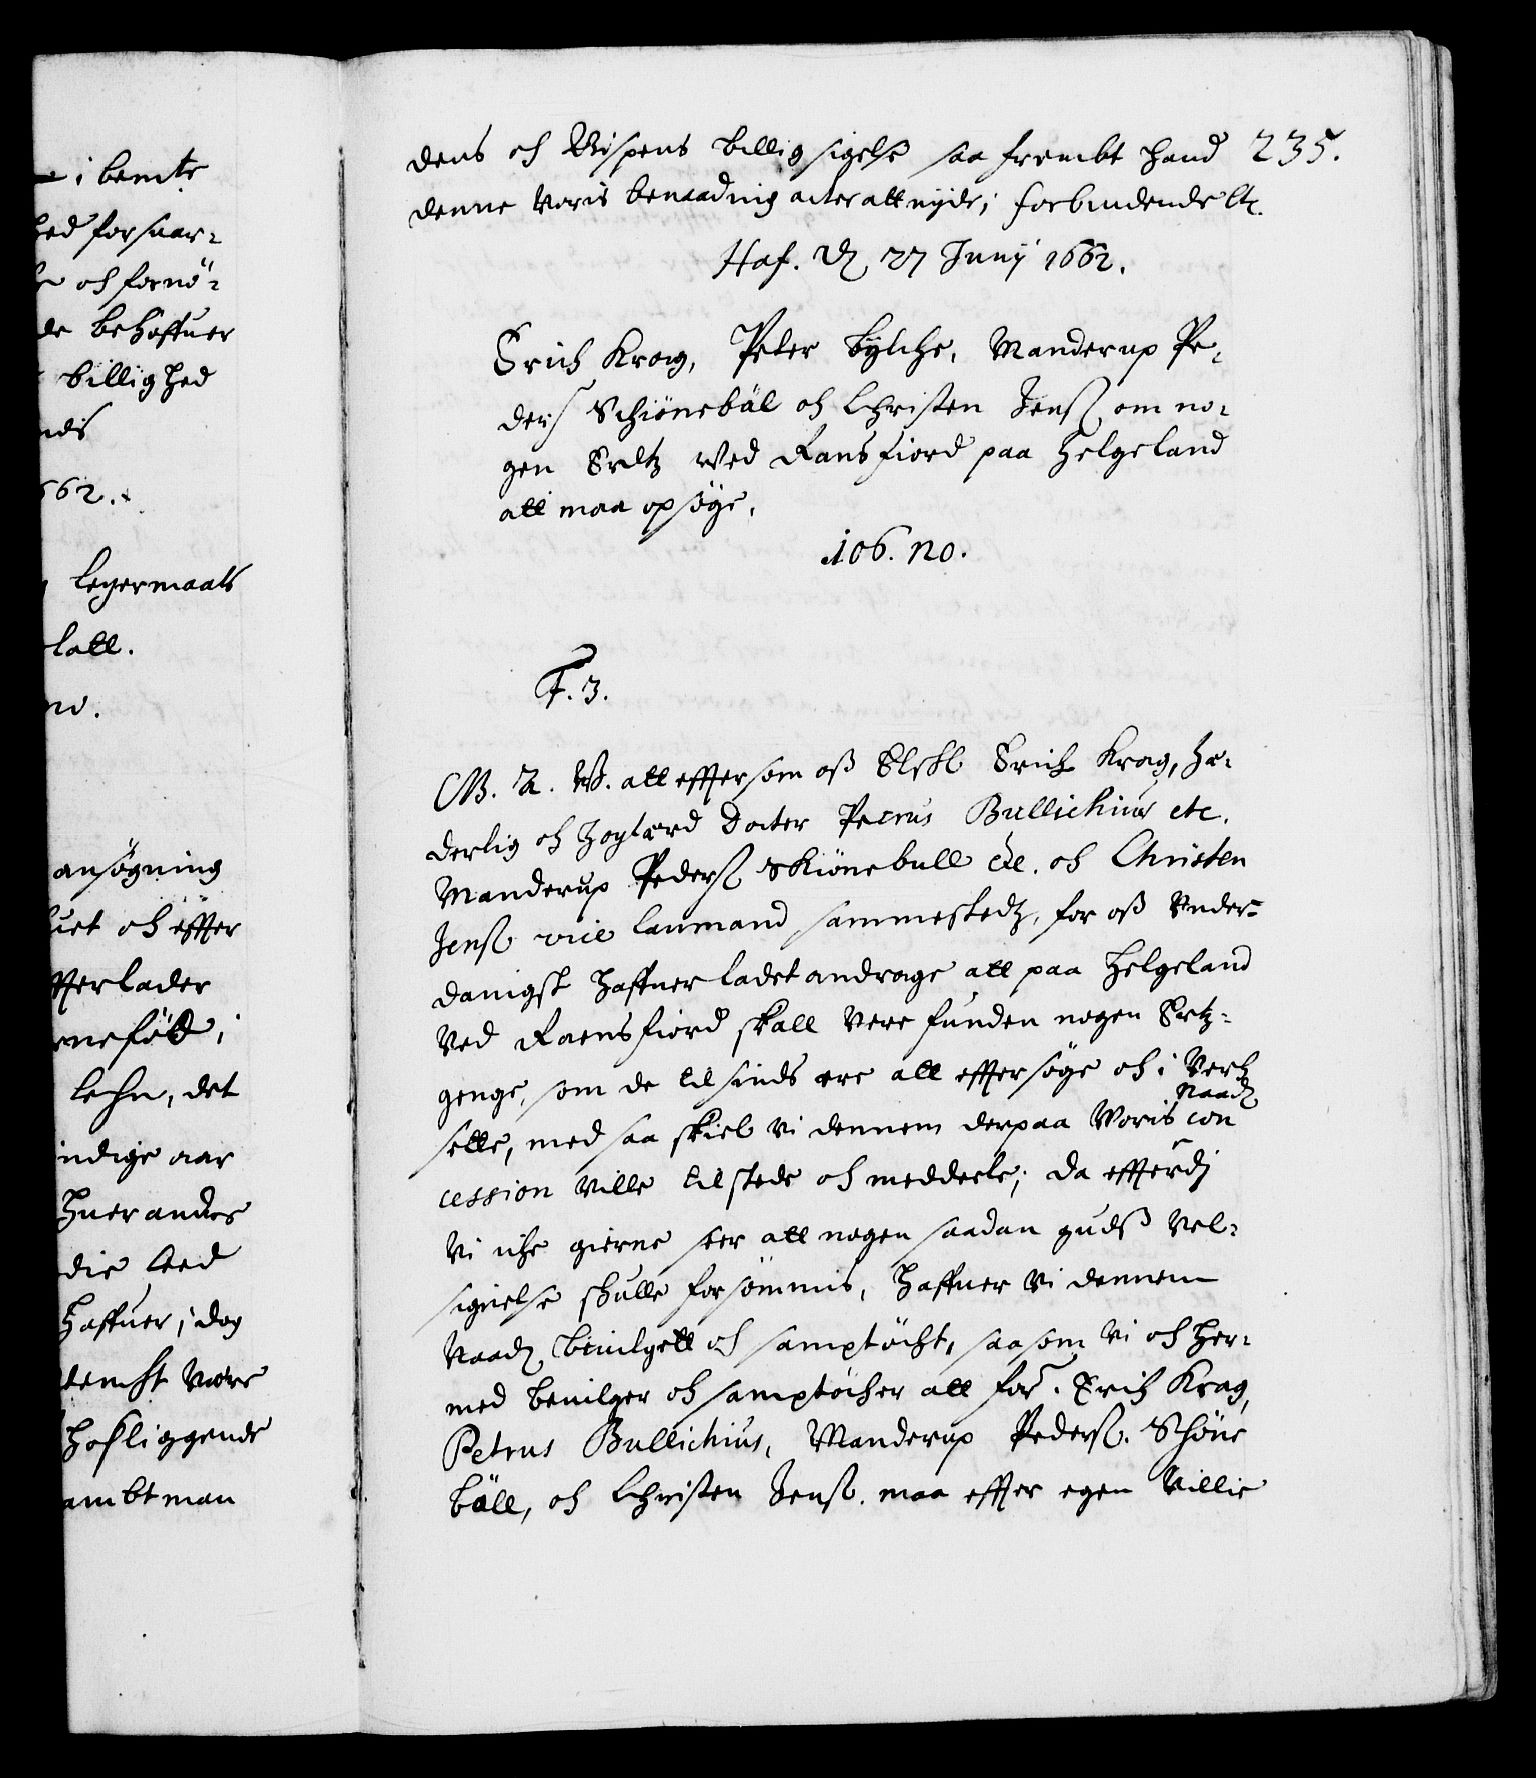 i bemte
hed forsuar-
och fornö-
de behoffuer
billighed
nds
662.
legermaals
latt.
no.
ansögning
uet och effter
fferlader
rnefött,
lehn, det
indige aar
huer andres
die leed
haffuer, i dag
temst være
hosliggende
ambtman
dens och Bispens billig sigelse saa frembt hand 235.
denne voris benaading acter att nyde; forbindendes etc.
Haf. d. 27 Junij 1662.
Erich Krag, Peter Bylche, Manderup Pe-
ders Schiönebäl och Christen Jenss om no-
gen Ertz ved Ransfiord paa Helgeland
att maa opsöge.
106. no.
F. 3.
G. A. V. att efftersom oss Elskl Erich Krag, Hæ-
derlig och Høylærd Docter Petrus Bullichius etc.
Manderup Pederss Skiönebull etc. och Christen
Jenss vice laumand sammestedz, for oss Under-
danigst haffuer ladet andrage att paa Helgeland
ved Raensfiord skall vere funden nogen Ertz-
genge, som de til sinds ere att efftersöge och i Verk
sette, med saa skiel vi dennem derpaa Voris naadg con
cession ville tilstede och meddeele; da effterdj
vi icke gierne seer att nogen saadan gudss vel-
signelse skulle forsömmis, haffuer vi dennem
Naadg beuilgett och samptöcht, saasom vi och her-
med beuilger och samptöcher att for. Erich Krag,
Petrus Bullichius, Manderup Pederss. Schöne
bäll, och Christen Jenss. maa effter egen villie